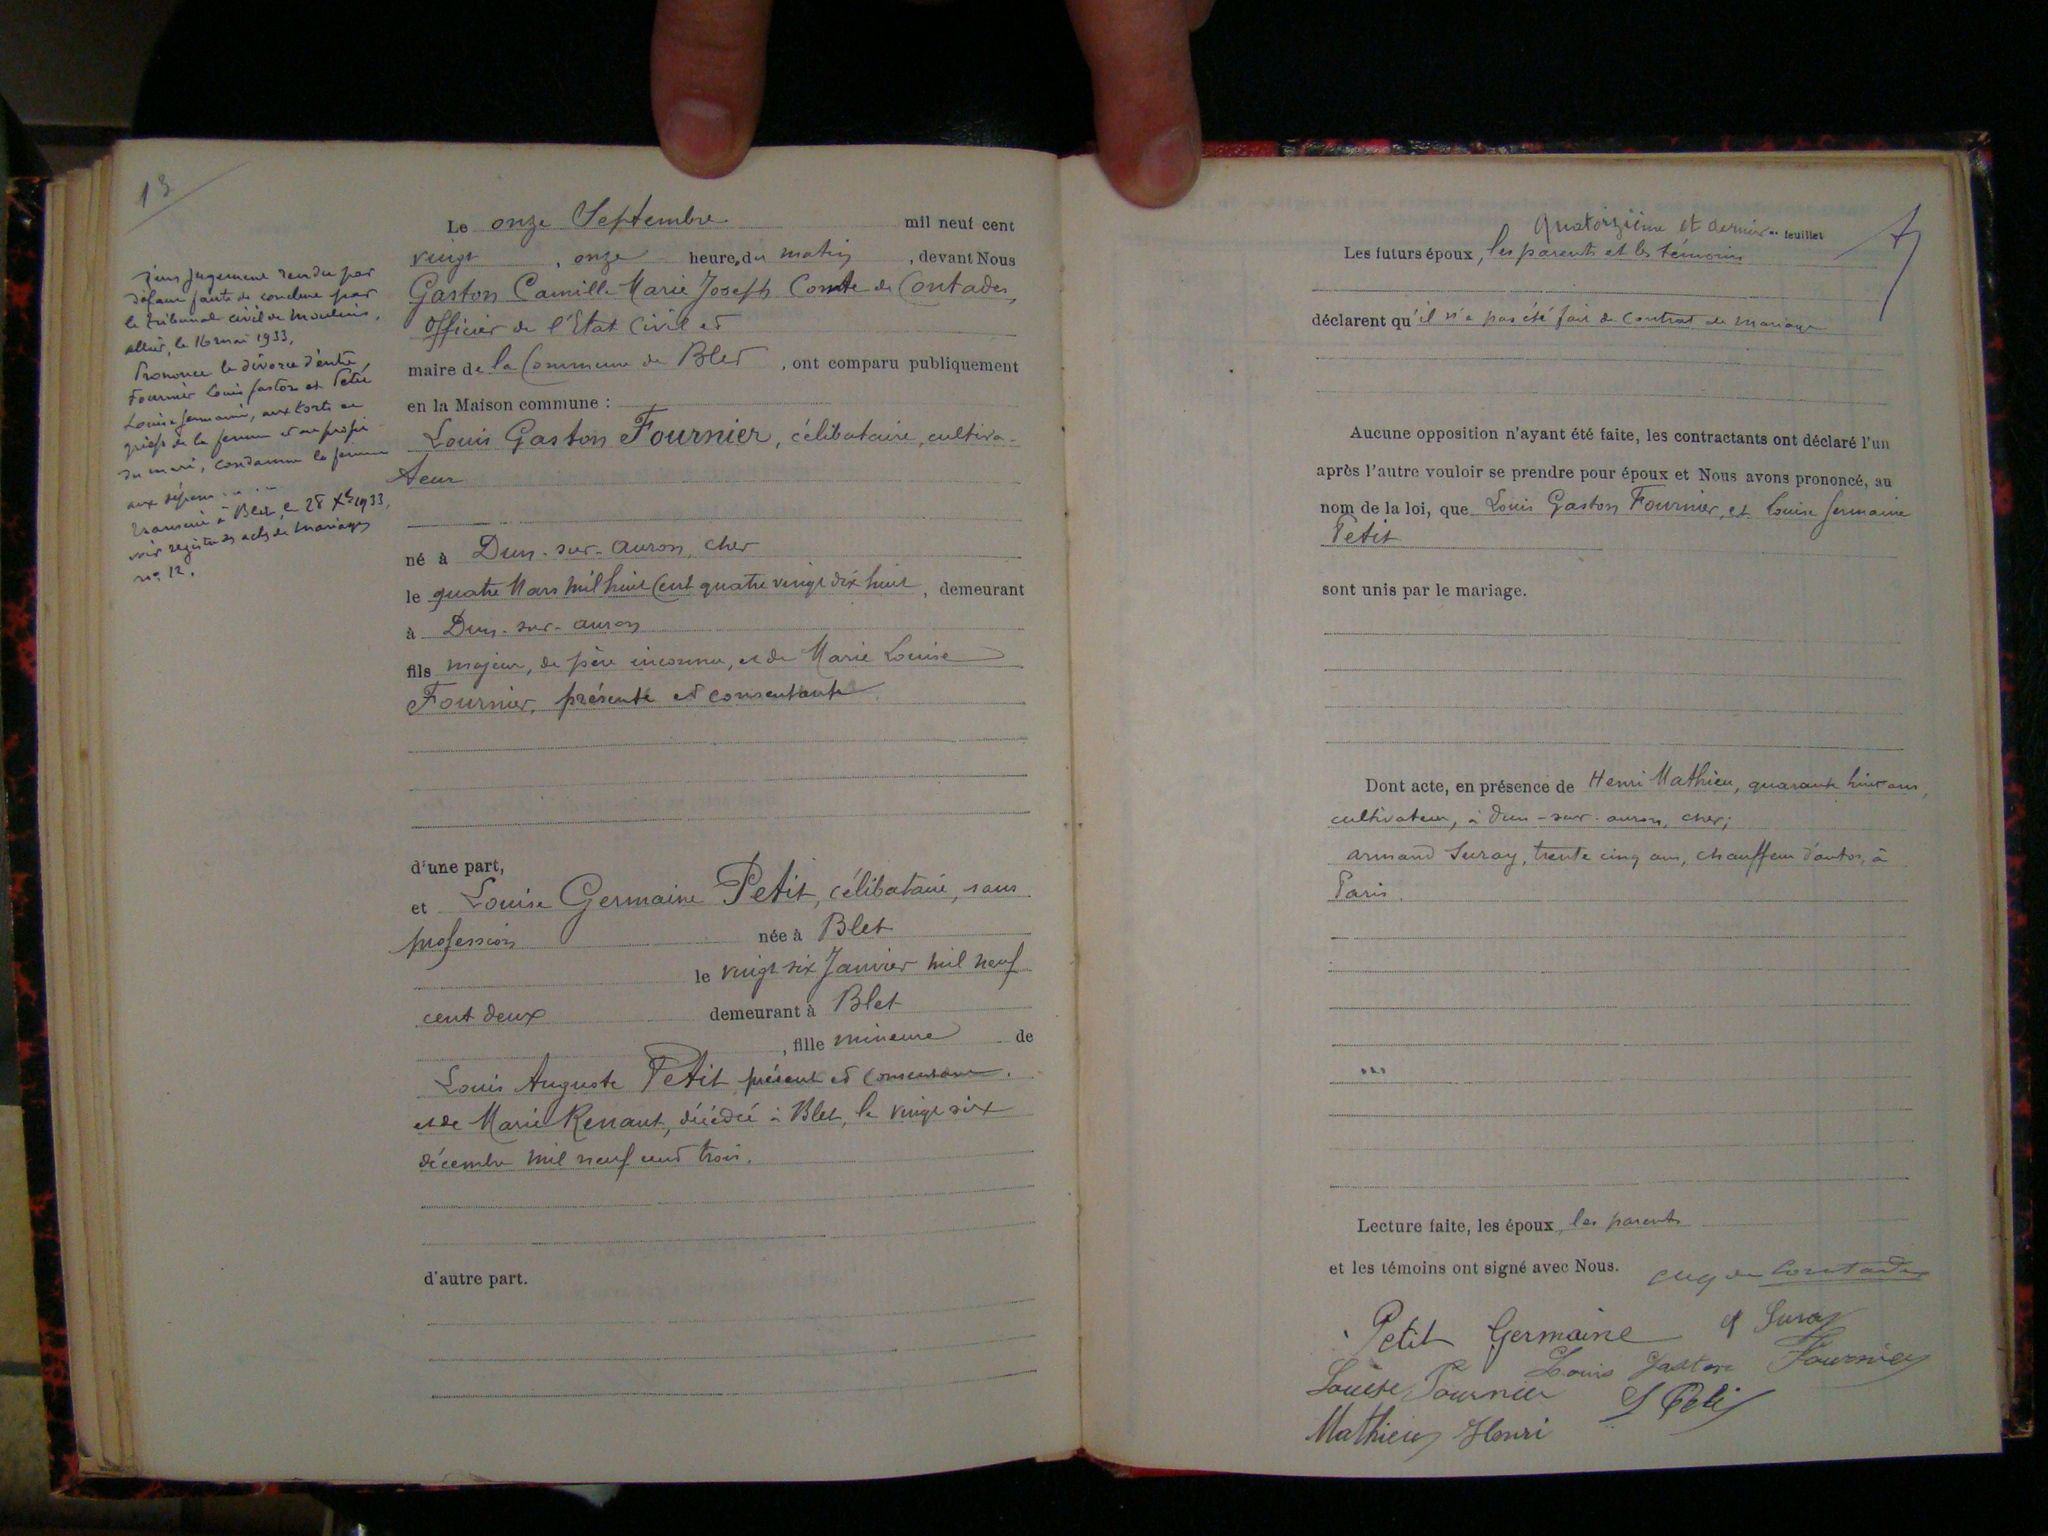 13
Le onze Septembre mil neuf cent
vingt, onze heures du matin, devant Nous
Gaston Camille Marie Joseph Comte de Contades,
Officier de l'Etat Civil et
maire de la Commune de Blet, ont comparu publiquement
en la Maison commune :
Louis Gaston Fournier, célibataire, cultiva-
teur
né à Dun-sur-Auron, Cher
le quatre Mars mil huit Cent quatre vingt dix huit, demeurant
à Dun-sur-Auron
fils majeur, de père inconnu, et de Marie Louise
Fournier, présente et consentante.
d'une part,
et Louise Germaine Petit, célibataire, sans
profession née à Blet
le vingt six Janvier mil neuf
cent deux demeurant à Blet
, fille mineure de
Louis Auguste Petit présent et consentant.
et de Marie Renaut, décédée à Blet, le vingt six
décembre mil neuf cent trois.
d'autre part.
jugement rendu par
défaut faute de conclure par
le tribunal civil de Moulins,
Allier, le 16 mai 1933,
Prononce le divorce d'entre
Fournier Louis Gaston et Petit
Louise Germaine, aux torts et
griefs de la femme et au profit
du mari, condamne la femme
aux dépens
Transcrit à Blet, le 28 Xbre 1933,
voir registre des actes de mariages
no 12.
Quatorzième et dernier feuillet
Les futurs époux, les parents et les témoins
déclarent qu'il n'a pas été fait de contrat de mariage
Aucune opposition n'ayant été faite, les contractants ont déclaré l'un
après l'autre vouloir se prendre pour époux et Nous avons prononcé, au
nom de la loi, que Louis Gaston Fournier, et Louise Germaine
Petit
sont unis par le mariage.
Dont acte, en présence de Henri Mathieu, quarante huit ans,
cultivateur, à Dun-sur-Auron, Cher;
Armand Suray, trente cinq ans, chauffeur d'autos, à
Paris.
Lecture faite, les époux, les parents
et les témoins ont signé avec Nous. de Contades
Petit Germaine Suray
Louis Gaston Fournier
Louise Fournier L Petit
Mathieu Henri